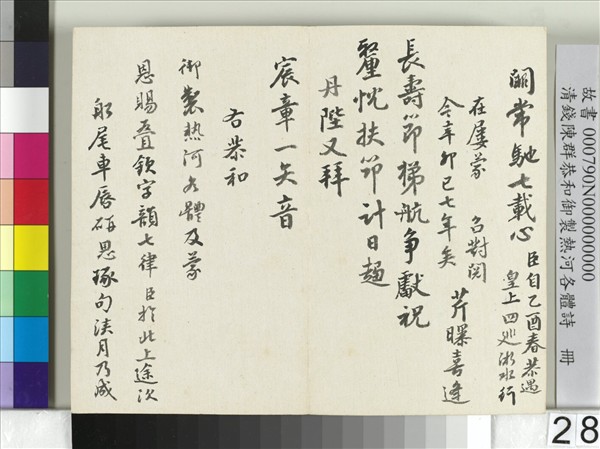 闕常馳七載心
臣自乙酉春恭遇
皇上四巡浙水行
在屢蒙 召對閱
今辛卯已七年矣
芹曝喜逢
長壽節梯航爭獻祝
釐忱扶筇計日趨
丹陛又拜
宸章一矢音
右恭和
御製熱河各體及蒙
恩賜疊欽字韻七律臣於此上途次
船尾車唇研思琢句浹月乃成
故書 000790N000000000
清錢陳群恭和御製熱河各體詩 冊
28